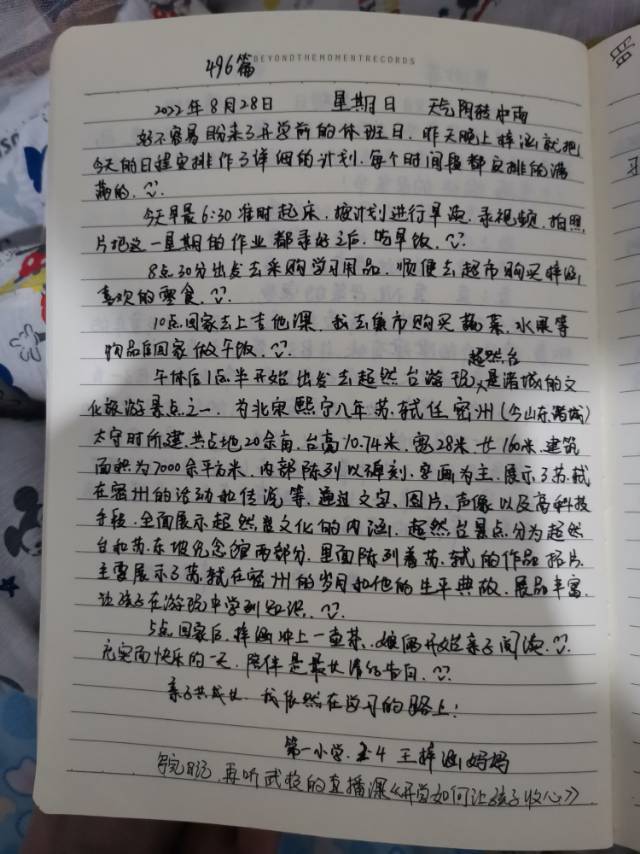 BEYONDTHEMOMENTRECORDS
496篇
2022年8月28日 星期日 天气阴转中雨
好不容易盼来了开学前的休班日，昨天晚上梓涵就把
今天的日程安排作了详细的计划，每个时间段都安排的满
满的。
今天早晨6:30准时起床，按计划进行早读，录视频，拍照
片把这一星期的作业都录好之后，吃早饭。
8点30分出发去采购学习用品，顺便去超市购买梓涵
喜欢的零食。
10点回家去上吉他课，我去集市购买蔬菜，水果等
物品后回家做午饭。
超然台
午休后1点半开始出发去超然台游玩，是诸城的文
化旅游景点之一，为北宋熙宁八年苏轼任密州（今山东诸城）
太守时所建，共占地20余亩，台高10.74米，宽28米，长160米，建筑
面积为7000余平方米，内部陈列以碑刻，字画为主，展示了苏轼
在密州的活动和传说等，通过文字，图片，声像以及高科技
手段，全面展示超然台文化的内涵，超然台景点分为超然
台和苏东坡纪念馆两部分，里面陈列着苏轼的作品照片，
主要展示了苏轼在密州的岁月和他的生平典故，展品丰富，
让孩子在游玩中学到知识。
5点回家后，梓涵冲上一壶茶，娘俩开始亲子阅读。
充实而快乐的一天，陪伴是最长情的告白。
亲子共成长，我依然在学习的路上！
第一小学 五·4 王梓涵妈妈
再听武校的直播课《开学如何让孩子收心》